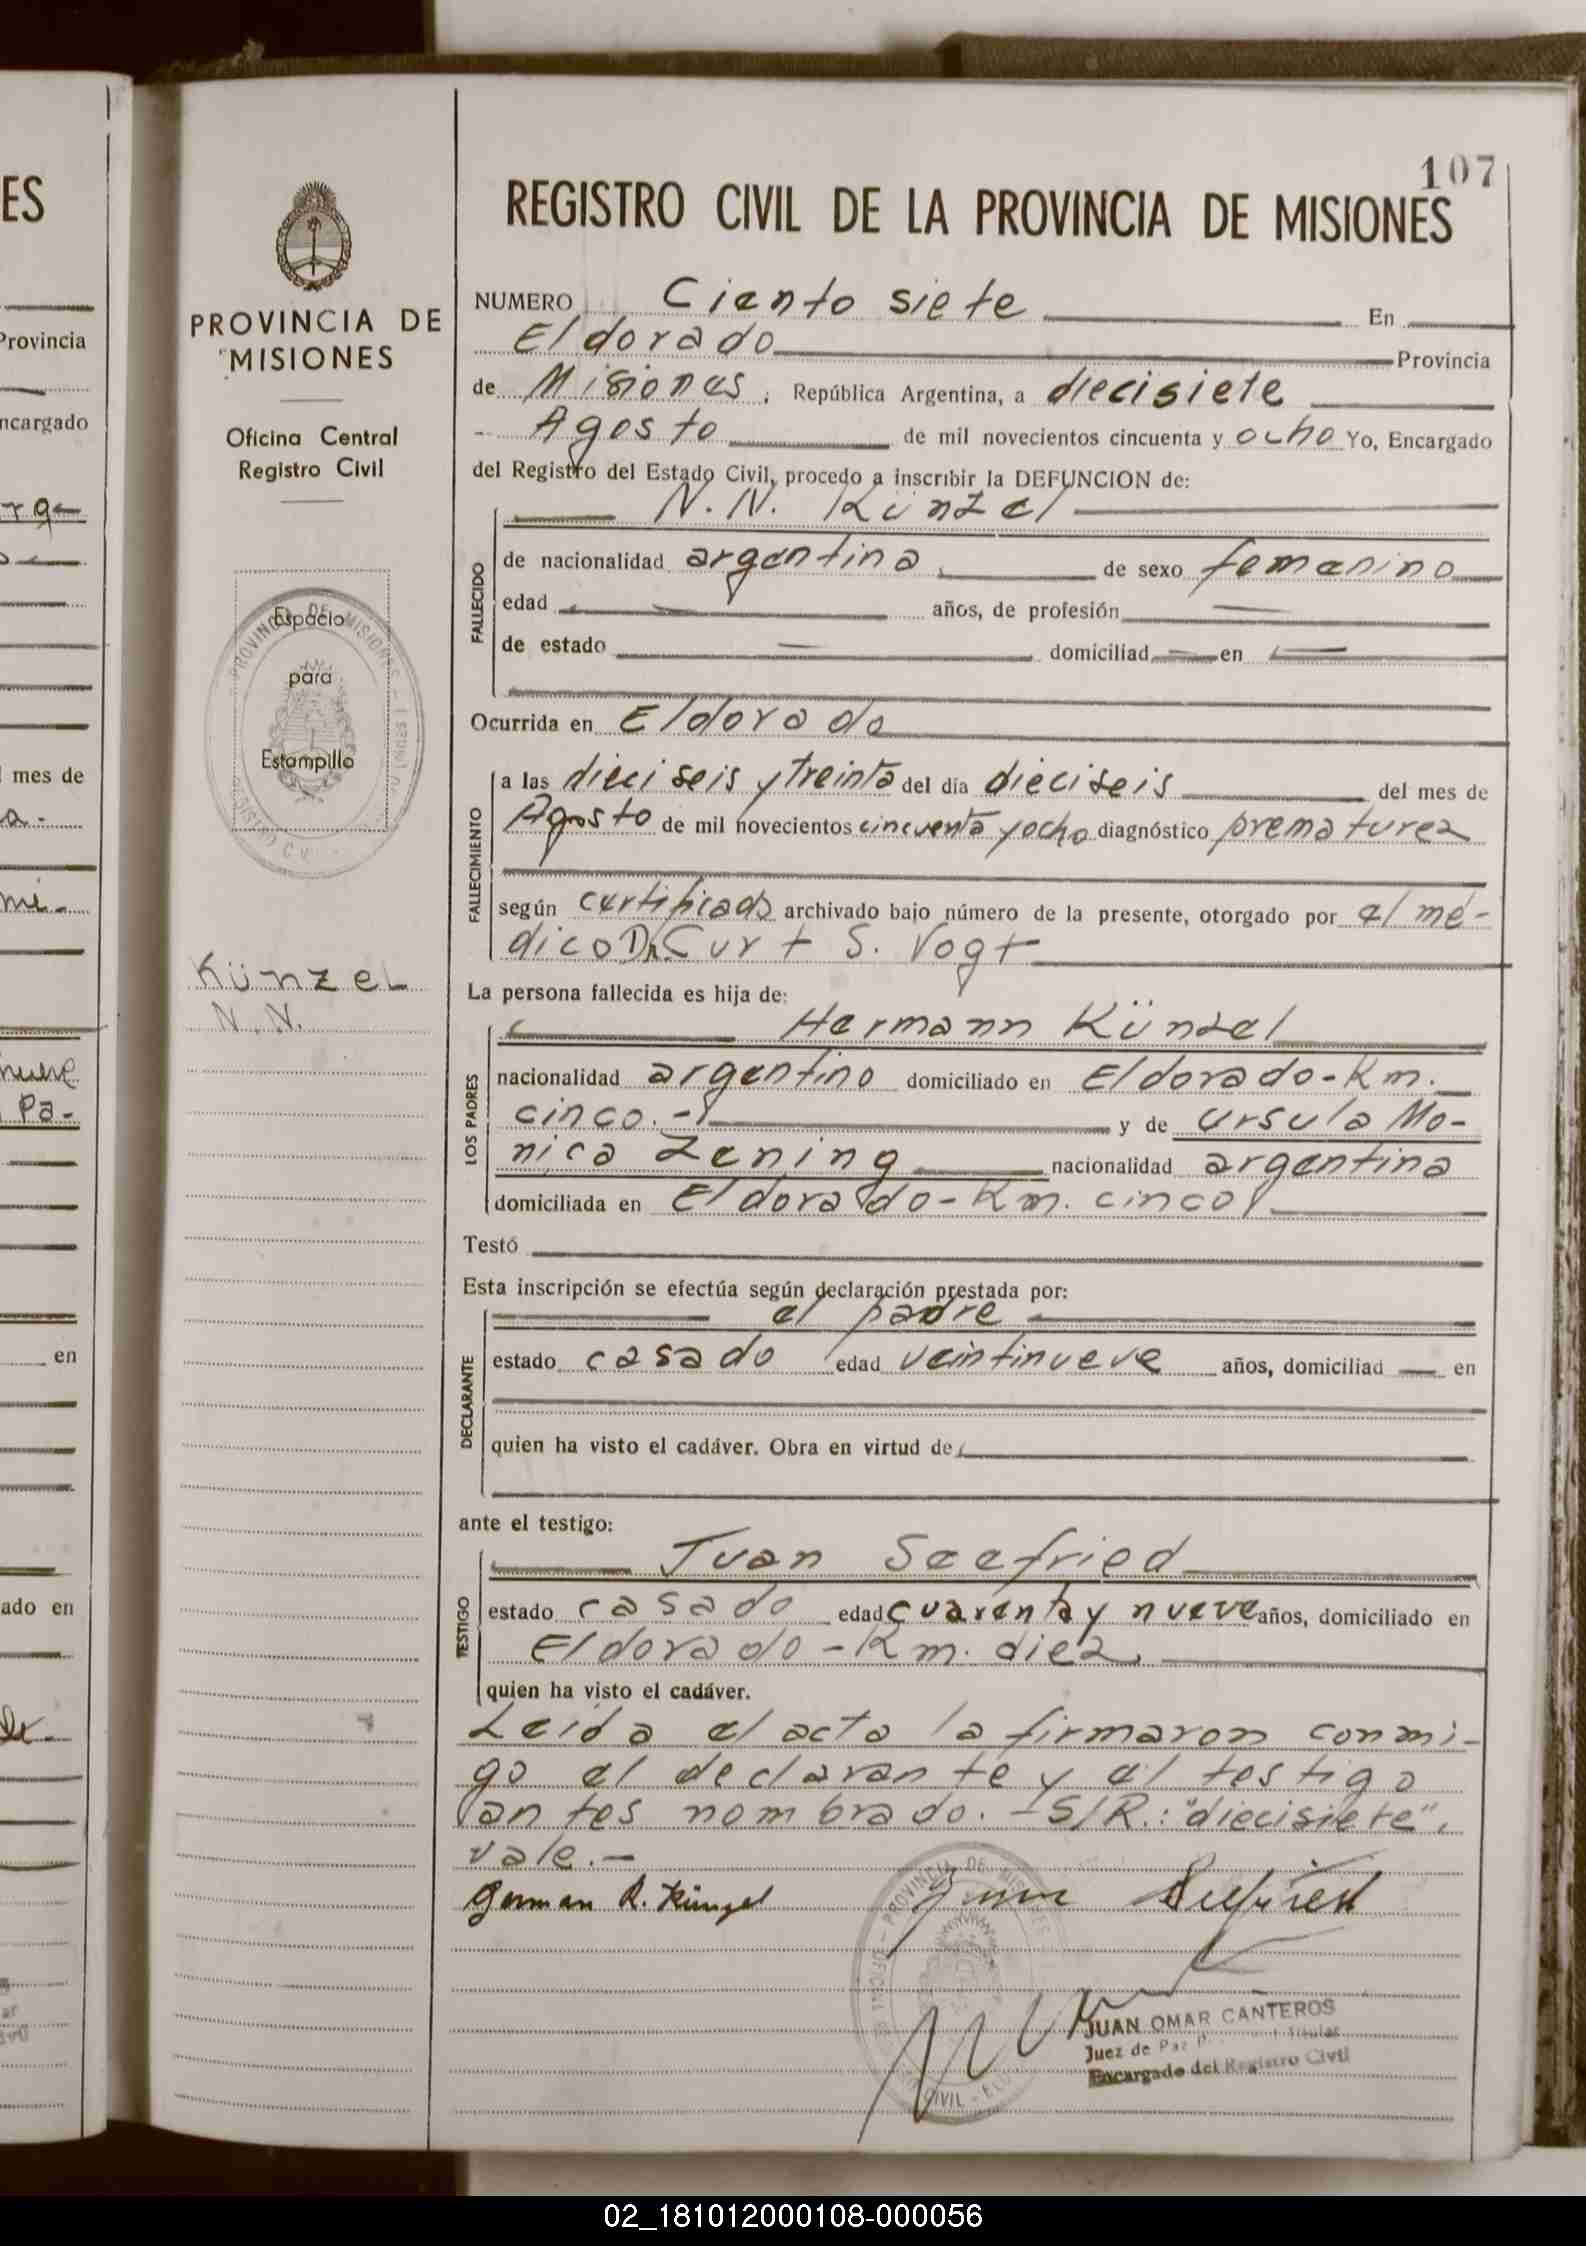 107
REGISTRO CIVIL DE LA PROVINCIA DE MISIONES
PROVINCIA DE
MISIONES
Oficina Central
Registro Civil
Espacio
para
Estampilla
Künzel
N.N.
NUMERO Ciento siete En
Eldorado Provincia
de Misiones, República Argentina, a diecisiete
Agosto de mil novecientos cincuenta y ocho Yo, Encargado
del Registro del Estado Civil, procedo a inscribir la DEFUNCION de:
N. N. Künzel
FALLECIDO
de nacionalidad argentina de sexo femenino
edad años, de profesión
de estado domiciliad en
Ocurrida en Eldorado
FALLECIMIENTO
a las dieciseis y treinta del día dieciseis del mes de
Agosto de mil novecientos cincuenta y ocho diagnóstico prematurez
según certificado archivado bajo número de la presente, otorgado por el mé-
dico Dr. Curt S. Vogt
La persona fallecida es hija de:
LOS PADRES
Hermann Künzel
nacionalidad argentino domiciliado en Eldorado-Km.
cinco.- y de Ursula Mo-
nica Zening nacionalidad argentina
domiciliada en Eldorado-Km. cinco
Testó
Esta inscripción se efectúa según declaración prestada por:
DECLARANTE
el padre
estado casado edad veintinueve años, domiciliad en
quien ha visto el cadáver. Obra en virtud de
ante el testigo:
TESTIGO
Juan Seefried
estado casado edad cuarenta y nueve años, domiciliado en
Eldorado-Km. diez
quien ha visto el cadáver.
Leída el acta la firmaron conmi-
go el declarante y el testigo
antes nombrado. -S/R.: "diecisiete",
vale.-
German R. Künzel Juan Seefried
JUAN OMAR CANTEROS
Juez de Paz Titular
Encargado del Registro Civil
02_181012000108-000056